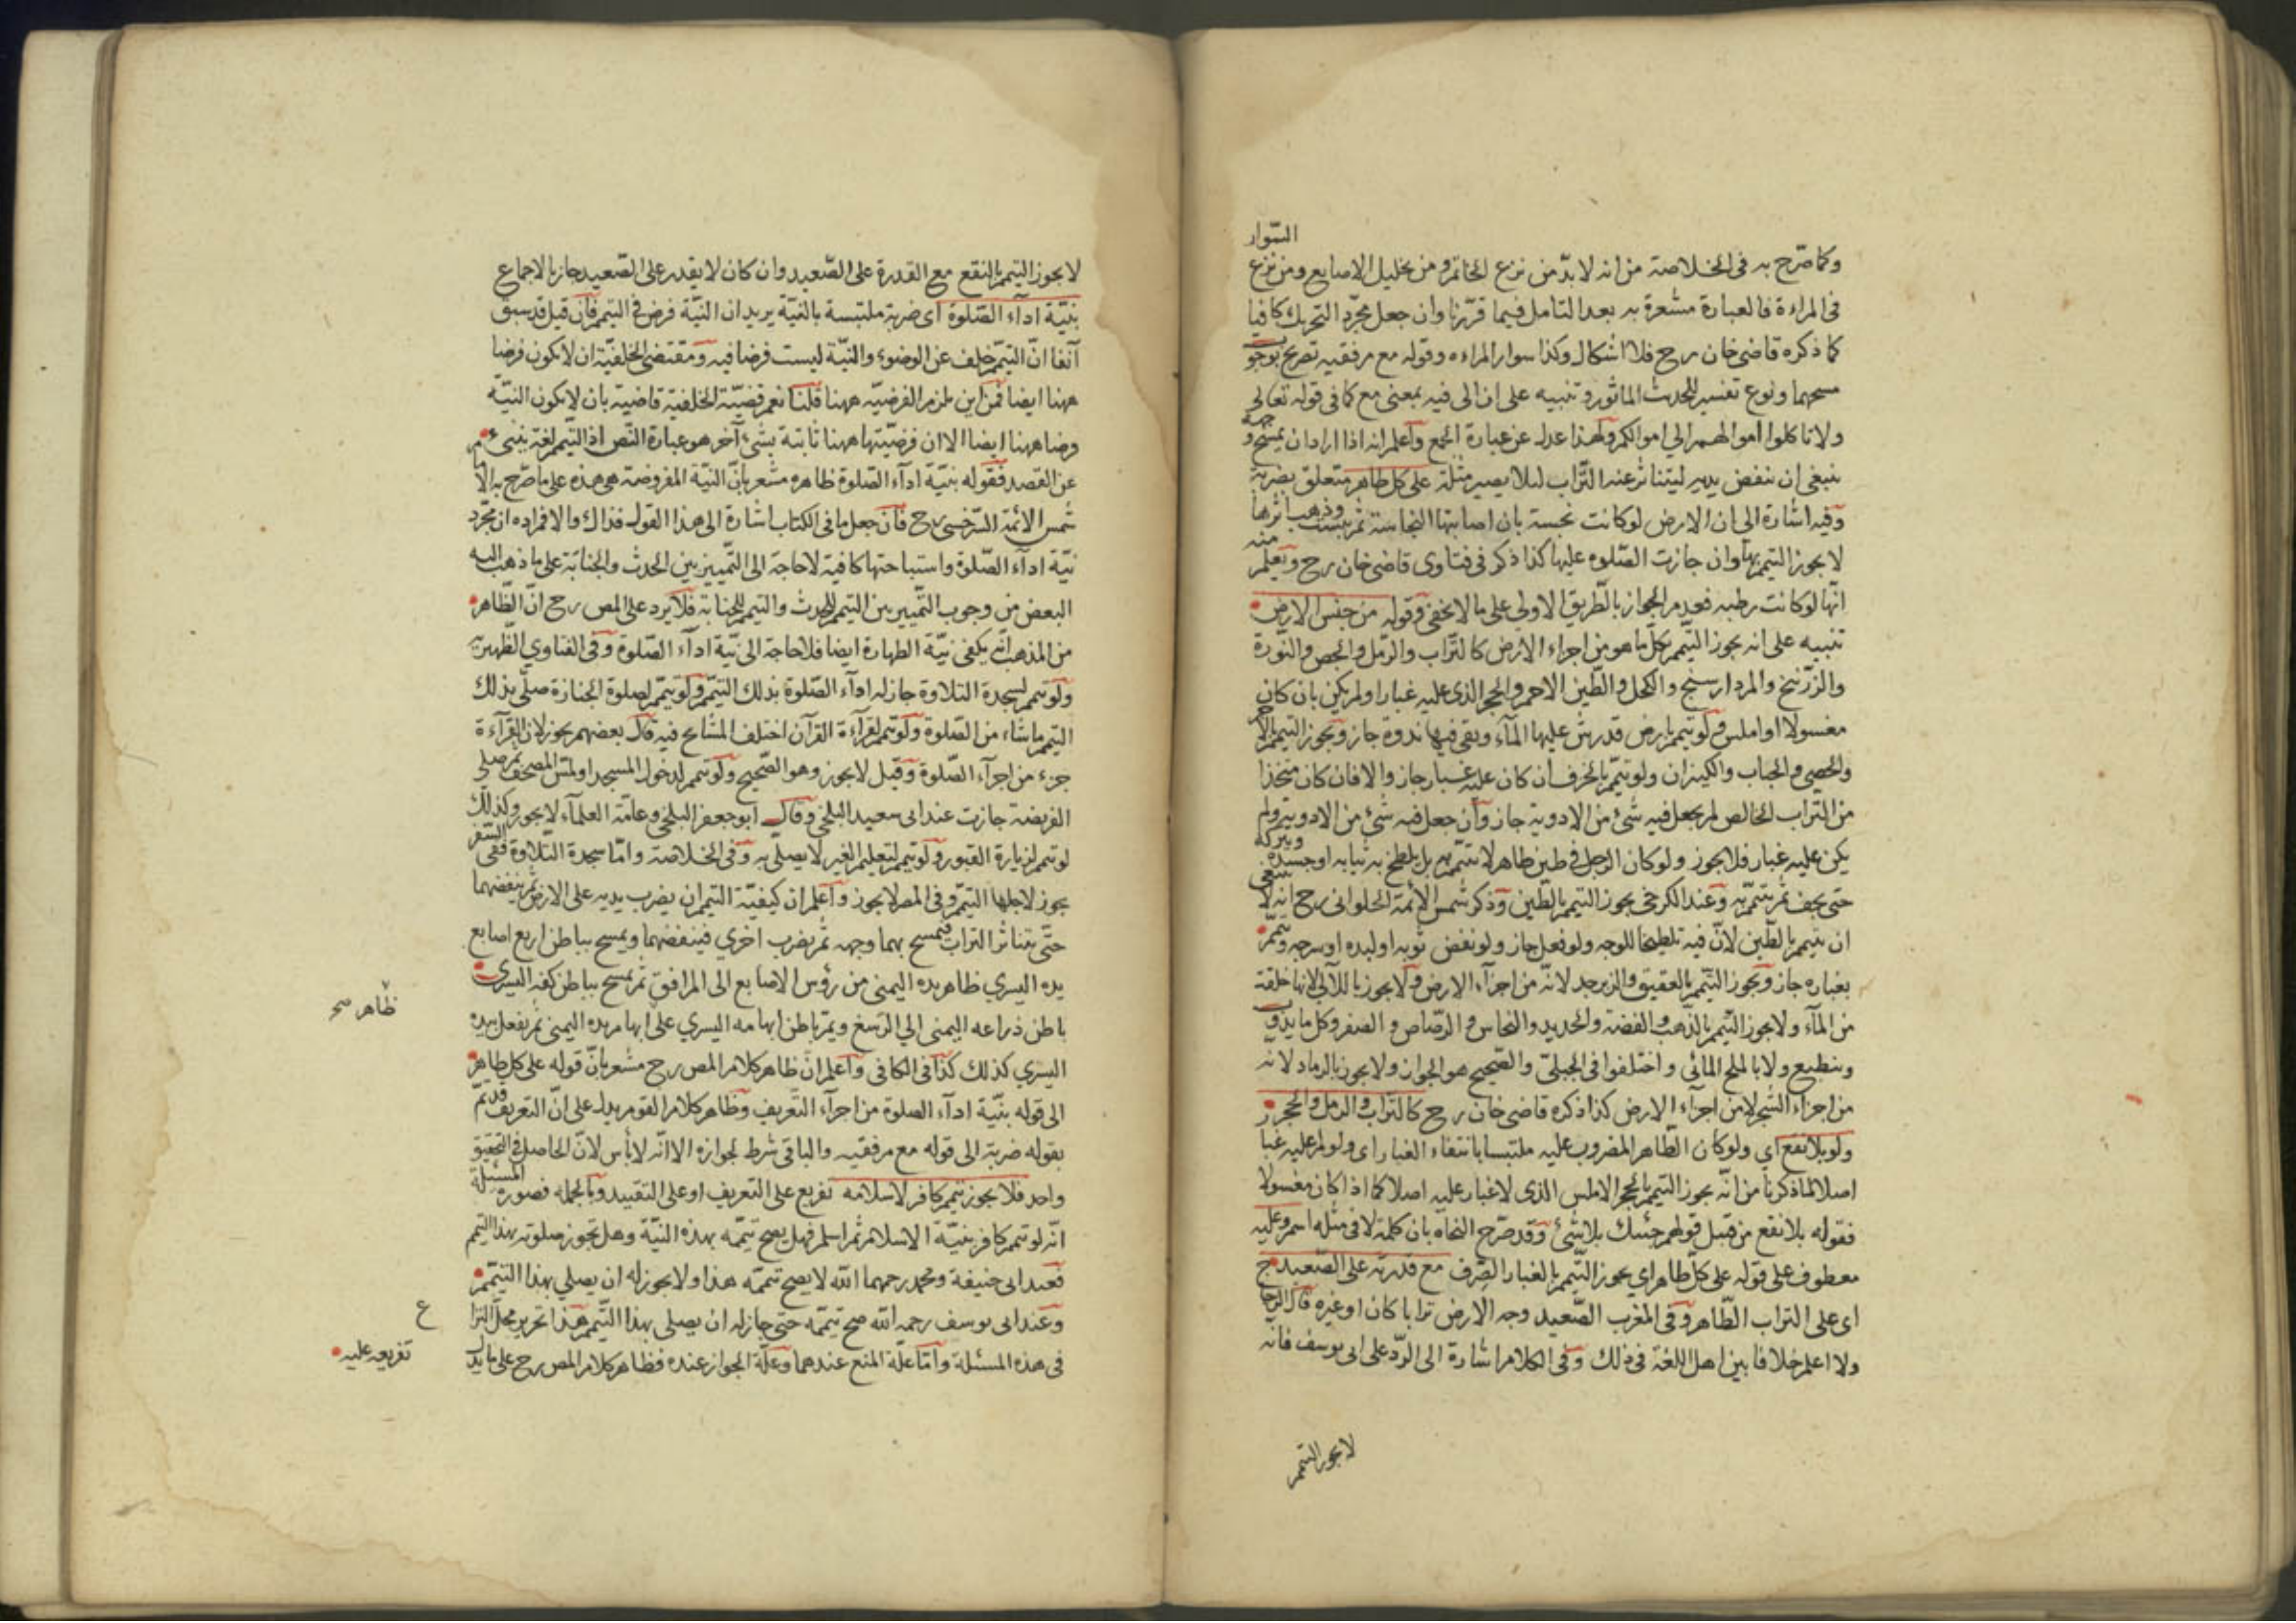 السّوار
وكما صرّح به فى الخلاصة من انه لا بدّ من نزع الخاتم و من تخليل الاصابع ومن نزع
فى المراءة فالعبارة مشعرة به بعد التامل فيما قرّرنا وان جعل مجرّد التحريك كافيا
كما ذكره قاضى خان رح فلا اشكال وكذا سوار المراءه وقوله مع مرفقيه تصريح بوجوب
مسحهما ونوع تفسير للحدث الماثور وتنبيه على ان الى فيه بمعنى مع كما فى قوله تعالى
ولا تاكلوا اموالهم الى اموالكم ولهذا عدل عن عبارة الجمع واعلم انه اذا اراد ان يمسح وجهه
ينبغى ان ينفض يديه ليتناثر عنه التّراب لئلا يصير مثلة على كل طاهر متعلق بضربة
وفيه اشارة الى ان الارض لو كانت نجسة بان اصابتها النجاسة ثم يبست وذهب اثرها
لا يجوز التيمم بها وان جازت الصّلوه عليها كذا ذكر فى فتاوى قاضى خان رح ويعلم منه
انّها لو كانت رطبه فعدم الجواز بالطّريق الاولى على ما لا يخفى وقوله من جنس الارض
تنبيه على انه يجوز التّيمم بكلّ ما هو من اجزاء الارض كالتّراب والرّمل والجص والنّورة
والزرّنيخ والمردارسنج والكحل والطّين الاحمر والحجر الذى عليه غبار اولم يكن بان كان
مغسولا او املس ولو تيمم بارض قد رشّ عليها المآء وبقى فيها ندوة جاز ويجوز التيمم بالآجر
والحصى والحباب والكيزان ولو تيمّم بالخزف ان كان عليه غبار جاز والا فان كان متخذا
من التّراب الخالص لم يجعل فيه شئ من الادوية جاز وان جعل فيه شئ من الادوية ولم
يكن عليه غبار فلا يجوز ولو كان الرجل فى طين طاهر لا يتيمّم به بل يلطخ به ثيابه او جسده ويتركه
حتى يجف ثم يتيمّم به وعند الكرخى يجوز التيمم بالطّين وذكر شمس الائمة الحلوانى رح انه لا ينبغى
ان يتيمم بالطّين لانّ فيه تلطيخا للوجه ولو فعل جاز ولو نفض ثوبه او لبده او سرجه وتيمّم
بغباره جاز ويجوز التّيمم بالعقيق والزبرجد لانّه من اجزآء الارض ولا يجوز باللآلى لانها خلقت
من المآء ولا يجوز التّيمم بالذّهب والفضة والحديد والنحاس و الرصاص و الصفر وكل ما يذوب
وينطبع ولا بالملح المائى و اختلفوا فى الجبلىّ والصّحيح هو الجواز ولا يجوز بالرماد لانه
من اجزاء الشّجر لا من اجزآء الارض كذا ذكره قاضى خان رح كالتّراب والرمل والحجر
ولو بلا نقع اي ولو كان الطّاهر المضروب عليه ملتبسا بانتفاء الغبار اى ولو لم عليه غبار
اصلا لما ذكرنا من انّه يجوز التيمم بالحجر الاملس الذى لا غبار عليه اصلا كما اذا كان مغسولا
فقوله بلا نقع من قبيل قولهم جئتك بلا شئ وقد صرّح النحاه بان كلمة لا فى مثله اسم وعليه
معطوف على قوله على كلّ طاهر اي يجوز التّيمم بالغبار الصّرف مع قدرته على الصّعيد
اى على التراب الطّاهر وفى المغرب الصّعيد وجه الارض ترابا كان او غيره قال الزجاج
ولا اعلم خلافا بين اهل اللغة فى ذلك وفى الكلام اشارة الى الرّد على ابى يوسف فانه
لا يجوز التيمم
لا يجوز التيمم بالنقع مع القدرة على الصّعيد وان كان لا يقدر على الصّعيد جاز بالاجماع
بنيّة ادآء الصّلوة اى ضربة ملتبسة بالنيّة يريد ان النيّة فرض فى التيمم فان قيل قد سبق
آنفا انّ التيمّم خلف عن الوضوء والنيّة ليست فرضا فيه ومقتضى الخلفيّة ان لا يكون فرضا
ههنا ايضا فمن اين يلزم الفرضيّه ههنا قلنا نعم قضيّة الخلفية قاضية بان لا يكون النيّه
فرضا ههنا ايضا الا ان فرضيّتها ههنا ثابتة بشئ آخر هو عبارة النّص اذ التّيمم لغة ينبئ
عن القصد فقوله بنيّة ادآء الصّلوة ظاهره مشعر بانّ النيّة المفروضة هى هذه على ما صرّح به الامام
شمس الائمة السّرخسى رح فان جعل ما فى الكتاب اشارة الى هذا القول فذاك والا فمراده ان مجّرد
نيّة ادآء الصّلوة واستباحتها كافية لا حاجة الى التّمييز بين الحدث والجنابة على ما ذهب اليه
البعض من وجوب التّمييز بين التيمم للحدث والتيمم للجنابة فلا يرد على المص رح انّ الظّاهر
من المذهب انّه يكفى نيّة الطهارة ايضا فلا حاجة الى نيّة ادآء الصّلوة وفى الفتاوي الظّهيريه
ولو تيمم لسجدة التلاوة جاز له ادآء الصّلوة بذلك التيمّم ولو تيمّم لصلوة الجنازة صلّى بذلك
التيمم ما شاء من الصّلوة ولو تيمم لقرآءة القرآن اختلف المشايخ فيه قال بعضهم يجوز لان القرآءة
جزء من اجزآء الصّلوة وقيل لا يجوز وهو الصّحيح ولو تيمم لدخول المسجد او لمسّ المصحف ثم صلى
الفريضة جازت عند ابى سعيد البلخى وقال ابو جعفر البلخى وعامّة العلمآء لا يجوز وكذلك
لو تيمم لزيارة القبور ولو تيمم لتعليم الغير لا يصلى به وفى الخلاصة وامّا سجدة التلاوة ففى السّفر
يجوز لاجلها التيمّم وفى المصر لا يجوز واعلم ان كيفيّة التيمم ان يضرب يديه على الارض ثم ينفضهما
حتّى يتناثر التراب فيمسح بهما وجهه ثم يضرب اخري فينفضهما ويمسح بباطن اربع اصابع
يده اليسري ظاهر يده اليمنى من رؤس الاصابع الى المرافق ثم يمسح بباطن كفه اليسرى
ظاهر صح
باطن ذراعه اليمنى الي الرّسغ ويمرّ باطن ابهامه اليسري على ابهام يده اليمنى ثم يفعل بيده
اليسري كذلك كذا فى الكافى واعلم انّ ظاهر كلام المص رح مشعر بانّ قوله على كل طاهر
الى قوله بنيّة ادآء الصلوة من اجزآء التّعريف وظاهر كلام القوم يدل على انّ التعريف قد تمّ
بقوله ضربة الى قوله مع مرفقيه والباقى شرط لجوازه الا انّه لا بأس لانّ الحاصل فى التحقيق
واحد فلا يجوز تيمم كافر لاسلامه تفريع على التعريف او على التقييد وبالجمله فصورة المسئلة
انّه لو تيمم كافر بنيّة الاسلام ثم اسلم فهل يصح تيمّمه بهذه النيّة وهل تجوز صلوته بهذا التيمم
فعند ابى حنيفة ومحمد رحمهما الله لا يصح تيممّه هذا ولا يجوز له ان يصلي بهذا التيمّم
وعند ابى يوسف رحمه الله صح تيمّمه حتى جاز له ان يصلى بهذا التّيمم هذا تحرير محلّ النزاع
فى هذه المسئلة وامّا علّة المنع عندهما وعلّة الجواز عنده فظاهر كلام المص رح على ما يدل
تفريعه عليه